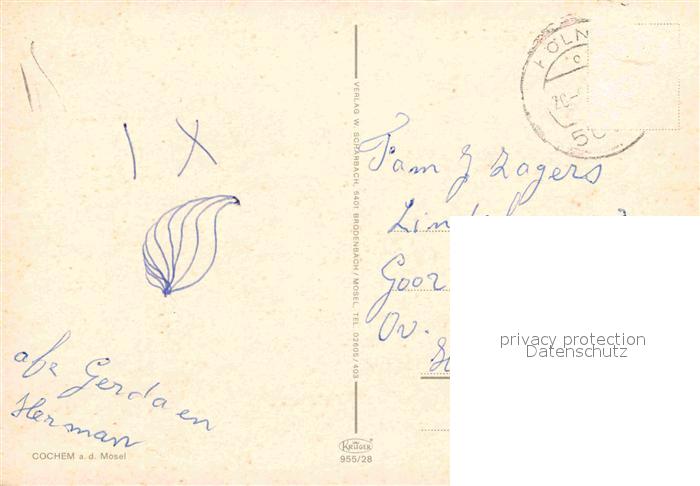 I X
afz Gerda en
Herman
COCHEM a. d. Mosel
VERLAG W. SCHARBACH, 5401 BRODENBACH / MOSEL, TEL. 02605/403
KRÜGER
955/28
KÖLN
Fam J Lagers
Goor
Ov.
privacy protection
Datenschutz